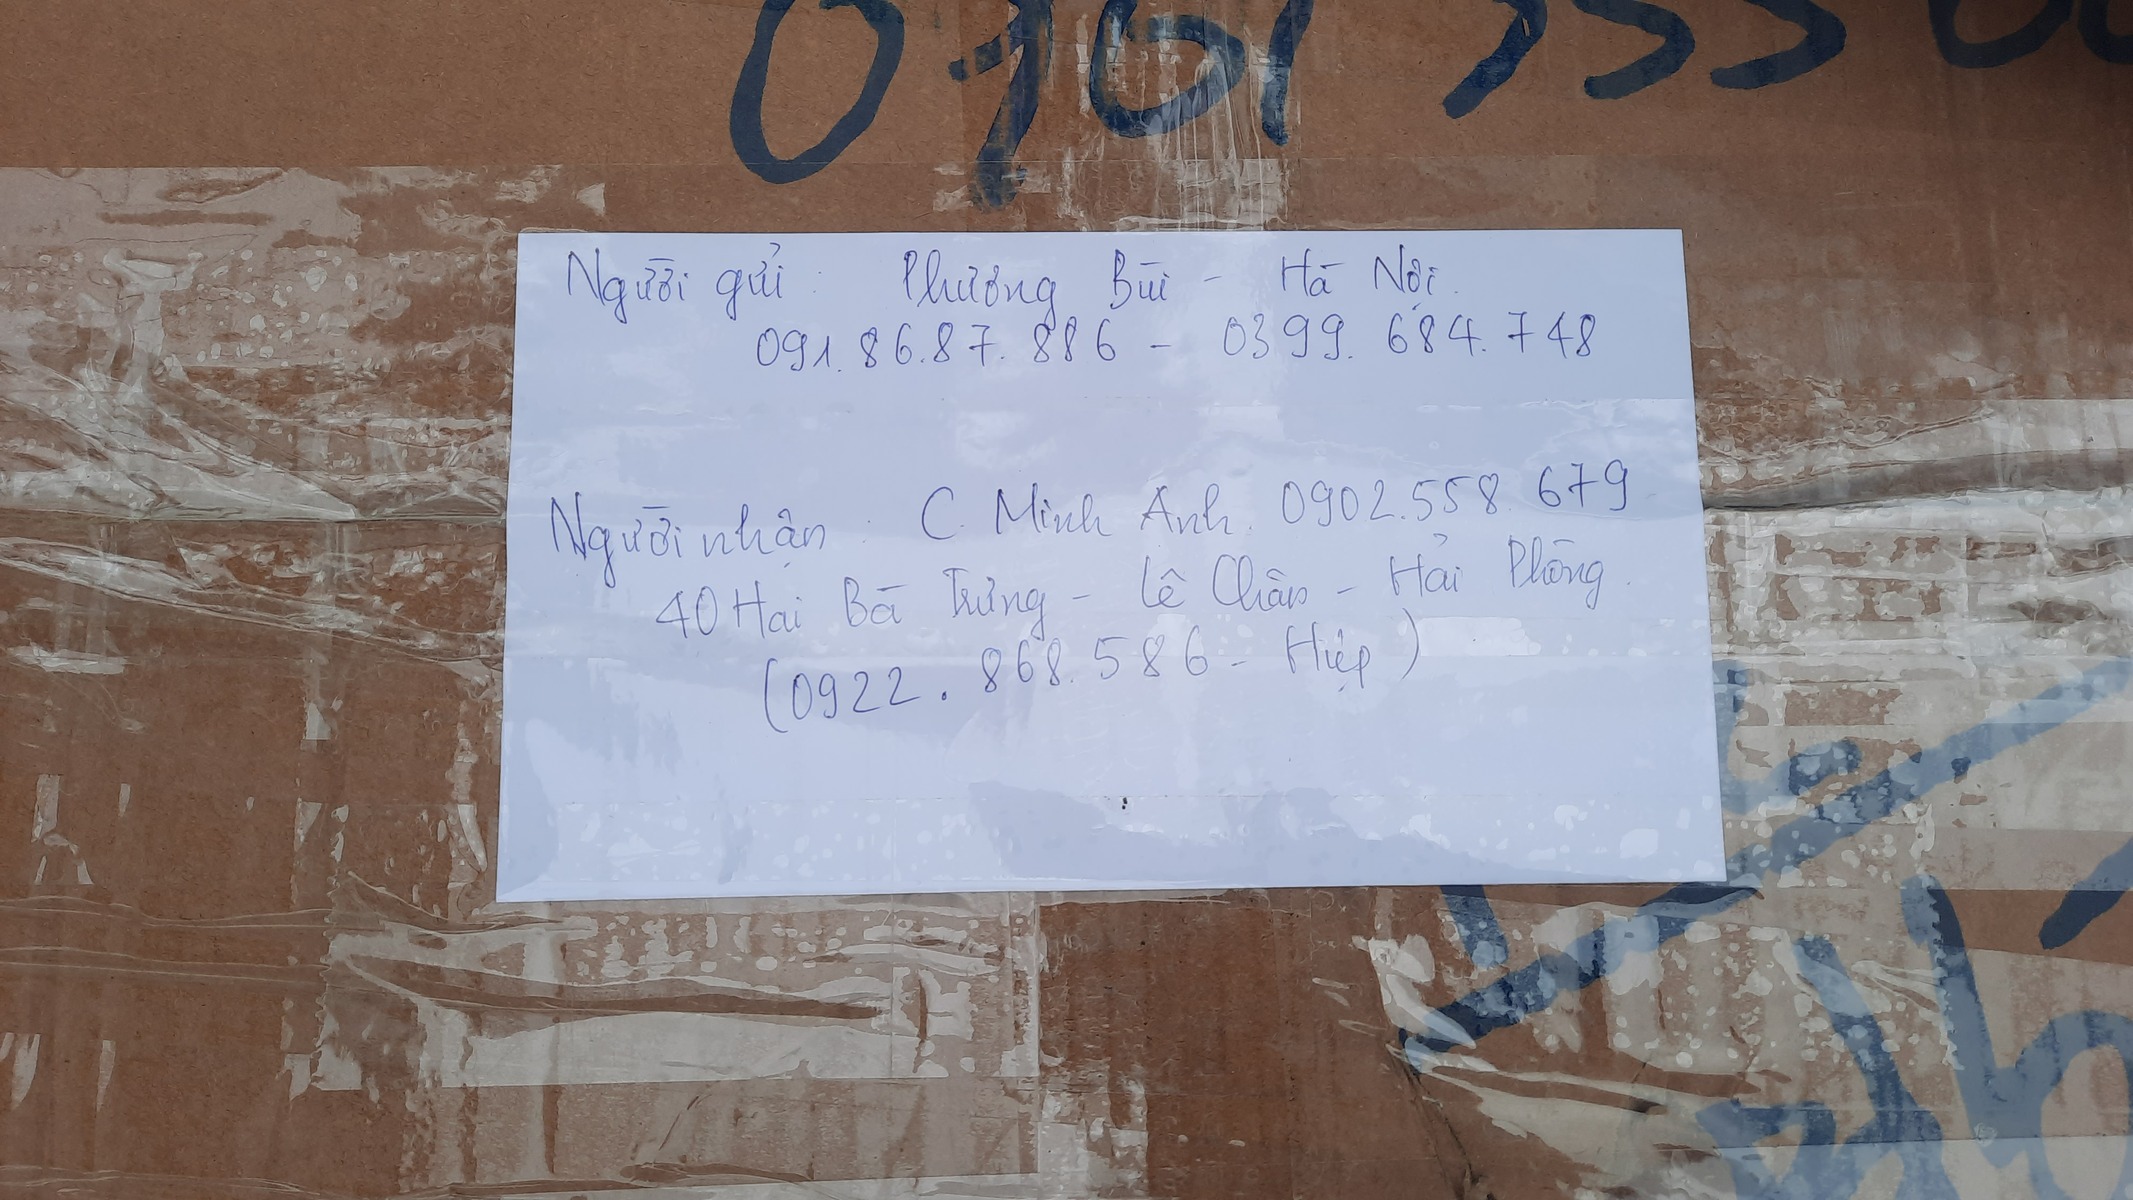 Người gửi : Phương Bùi - Hà Nội.
091.86.87.886 - 0399.684.748
Người nhận : C Minh Anh. 0902.558.679
40 Hai Bà Trưng - Lê Chân - Hải Phòng.
(0922.868.586 - Hiệp)